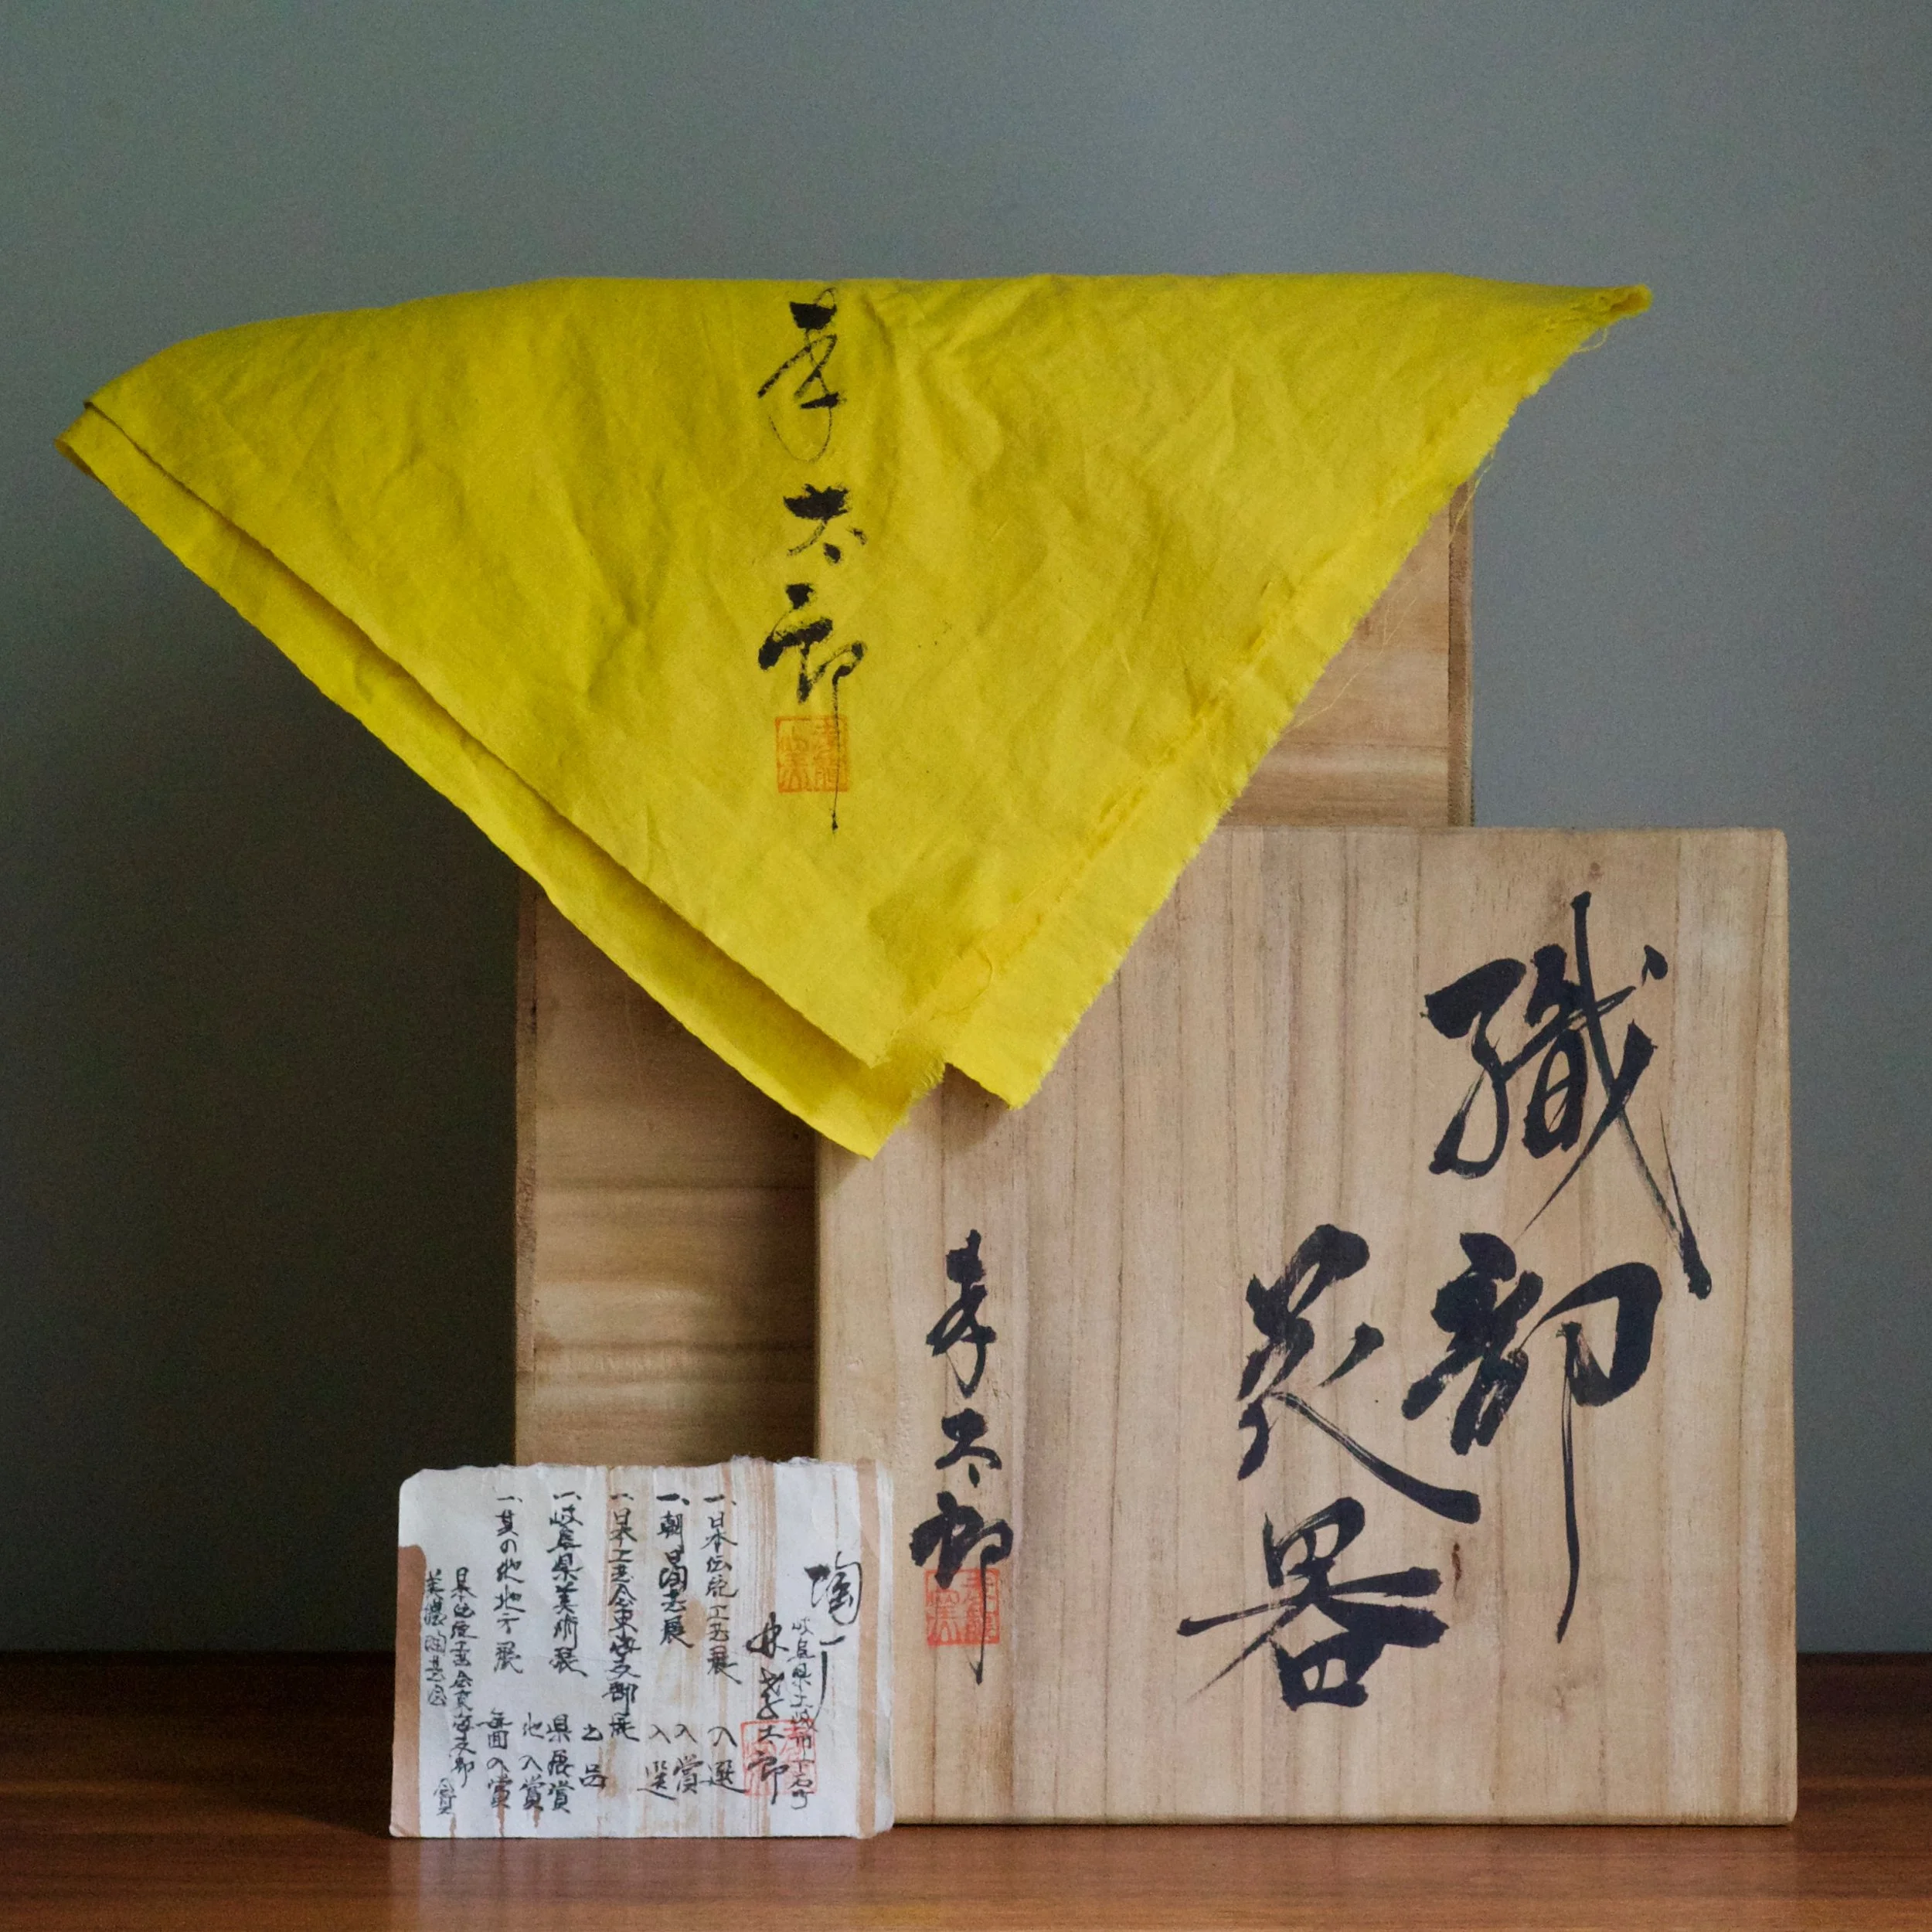 孝太郎
織部
花器
孝太郎
陶
岐阜県土岐市下石町
林孝太郎
一、日本伝統工芸展 入選
一、朝日陶芸展 入賞 入選
一、日本工芸会東海支部展 出品
一、岐阜県美術展 県展賞 他入賞
一、其の他地方展 毎回入賞
日本伝統工芸会東海支部
美濃陶芸会 会員